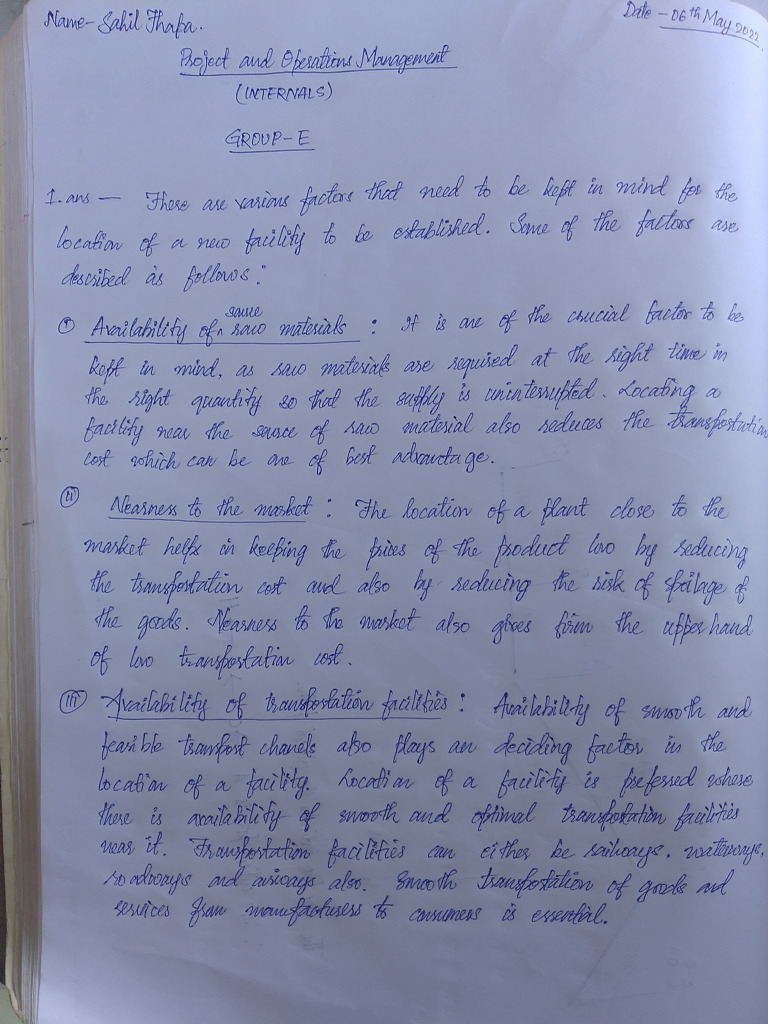 Name - Sahil Thapa.
Date - 06th May 2022.
Project and Operations Management
(INTERNALS)
GROUP-E
1.ans — There are various factors that need to be kept in mind for the
location of a new facility to be established. Some of the factors are
described as follows:
(i) Availability of raw materials : It is one of the crucial factor to be
kept in mind, as raw materials are required at the right time in
the right quantity so that the supply is uninterrupted. Locating a
facility near the source of raw material also reduces the transportation
cost which can be one of best advantage.
(ii) Nearness to the market : The location of a plant close to the
market helps in keeping the prices of the product low by reducing
the transportation cost and also by reducing the risk of spoilage of
the goods. Nearness to the market also gives firm the upper hand
of low transportation cost.
(iii) Availability of transportation facilities : Availability of smooth and
feasible transport chanels also plays an deciding factor in the
location of a facility. Location of a facility is preferred where
there is availability of smooth and optimal transportation facilities
near it. Transportation facilities can either be railways, waterways,
roadways and airways also. Smooth transportation of goods and
services from manufacturers to consumers is essential.